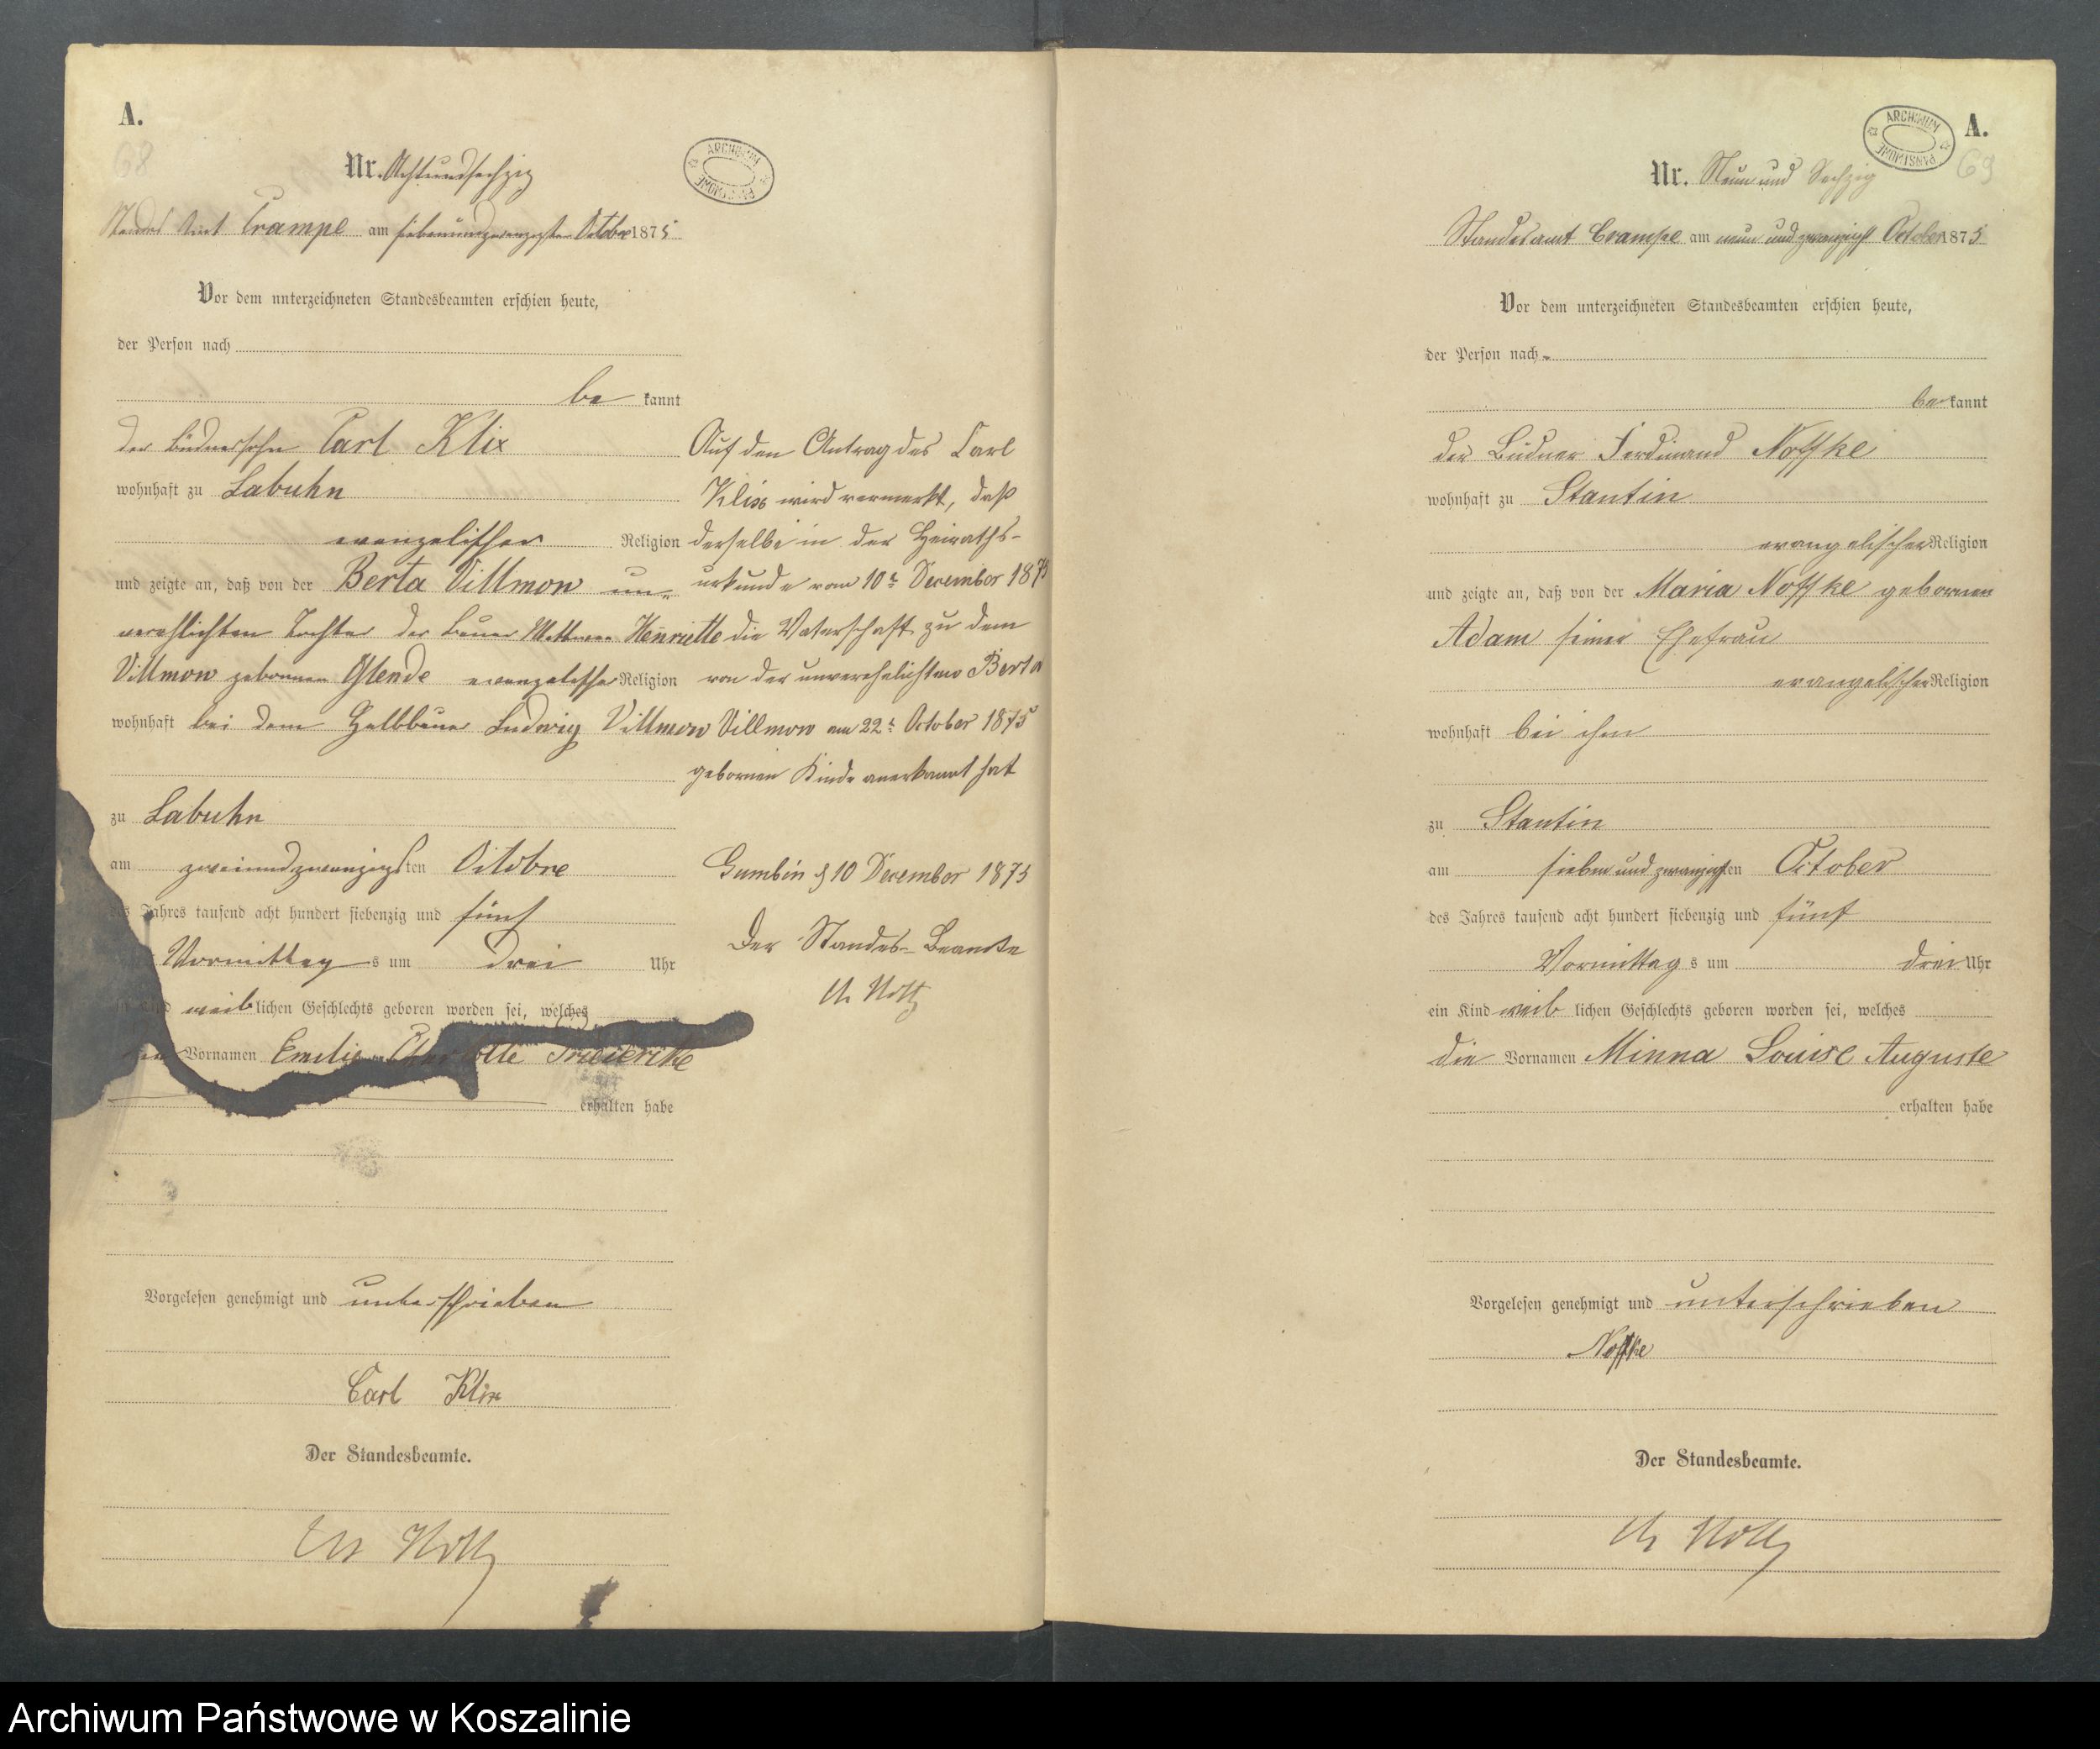 A.
68
Nr. Achtundsechzig
ARCHIWUM PAŃSTWOWE
Standes Amt Crampe am siebenundzwanzigsten October 1875
Vor dem unterzeichneten Standesbeamten erschien heute,
der Person nach
be kannt
der Büdnersohn Carl Klix
wohnhaft zu Labuhn
evangelischer Religion
und zeigte an, daß von der Berta Villmow un-
verehlichten Tochter der Bauer Henriette
Villmow geborenen Glende evangelischer Religion
wohnhaft bei dem Halbbauer Ludwig Villmow
zu Labuhn
am zweiundzwanzigsten October
des Jahres tausend acht hundert siebenzig und fünf
Vormittag s um drei Uhr
Kind weib lichen Geschlechts geboren worden sei, welches
Vornamen Emilie Charlotte Friederike
erhalten habe
Vorgelesen genehmigt und unterschrieben
Carl Klix
Der Standesbeamte.
Auf den Antrag des Carl
Klix wird vermerkt, daß
derselbe in der Heiraths-
urkunde vom 10t December 1875
die Vaterschaft zu dem
von der unverehelichten Berta
Villmow am 22t October 1875
gebornen Kinde anerkannt hat
Gumbin d 10 December 1875
Der Standes-Beamte
ARCHIWUM PAŃSTWOWE
A.
69
Nr. Neun und Sechzig
Standesamt Crampe am neun und zwanzigst October 1875
Vor dem unterzeichneten Standesbeamten erschien heute,
der Person nach
be kannt
der Büdner Ferdinand Noffke
wohnhaft zu Stantin
evangelischer Religion
und zeigte an, daß von der Maria Noffke gebornen
Adam seiner Ehefrau
evangelischer Religion
wohnhaft bei ihm
zu Stantin
am sieben und zwanzigsten October
des Jahres tausend acht hundert siebenzig und fünf
Vormittag s um drei Uhr
ein Kind weib lichen Geschlechts geboren worden sei, welches
die Vornamen Minna Louise Auguste
erhalten habe
Vorgelesen genehmigt und unterschrieben
Noffke
Der Standesbeamte.
Archiwum Państwowe w Koszalinie